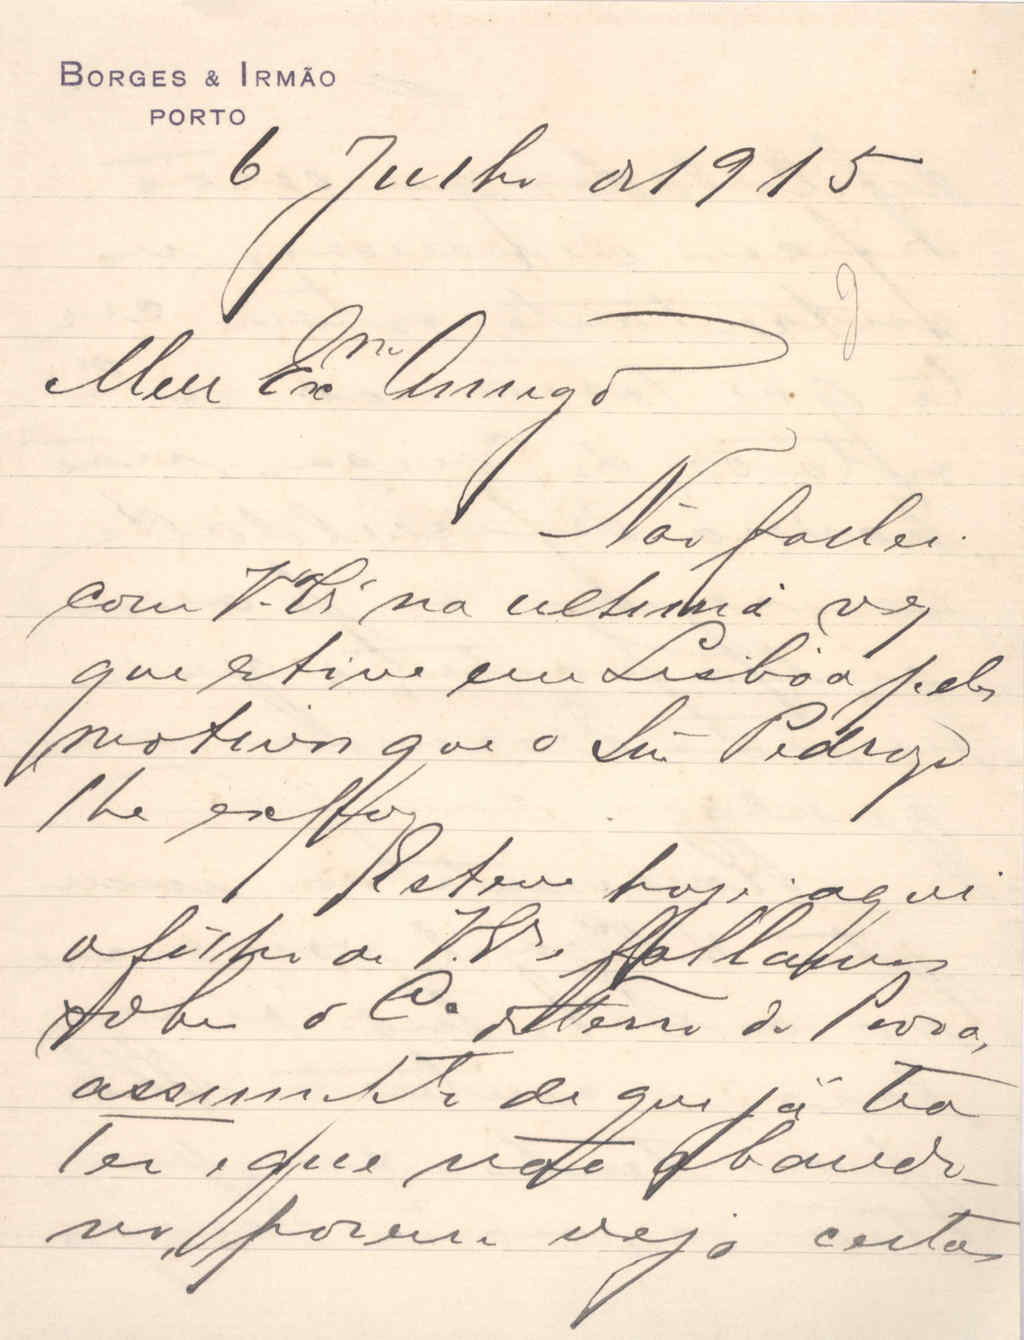 BORGES & IRMÃO
PORTO
6 Julho de 1915
Meu Exmo Amigo
Não fallei
com V. Exª na ultima vez
que estive em Lisboa pelos
motivos que o Snr Pedrozo
lhe expoz
Esteve hoje aqui
o filho de V. Exª e fallamos
sobre o Cº de Ferro da Povoa,
assumpto de que já tra
tei e que não abando-
no, porem vejo certas